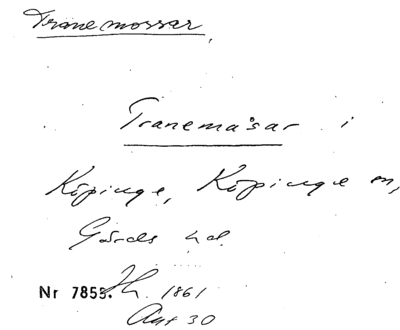 Tranemossar,
Tranemåsar i
Köpinge, Köpinge sn,
Gärds hd.
Nr 7855. Jh. 1861
Ant 30